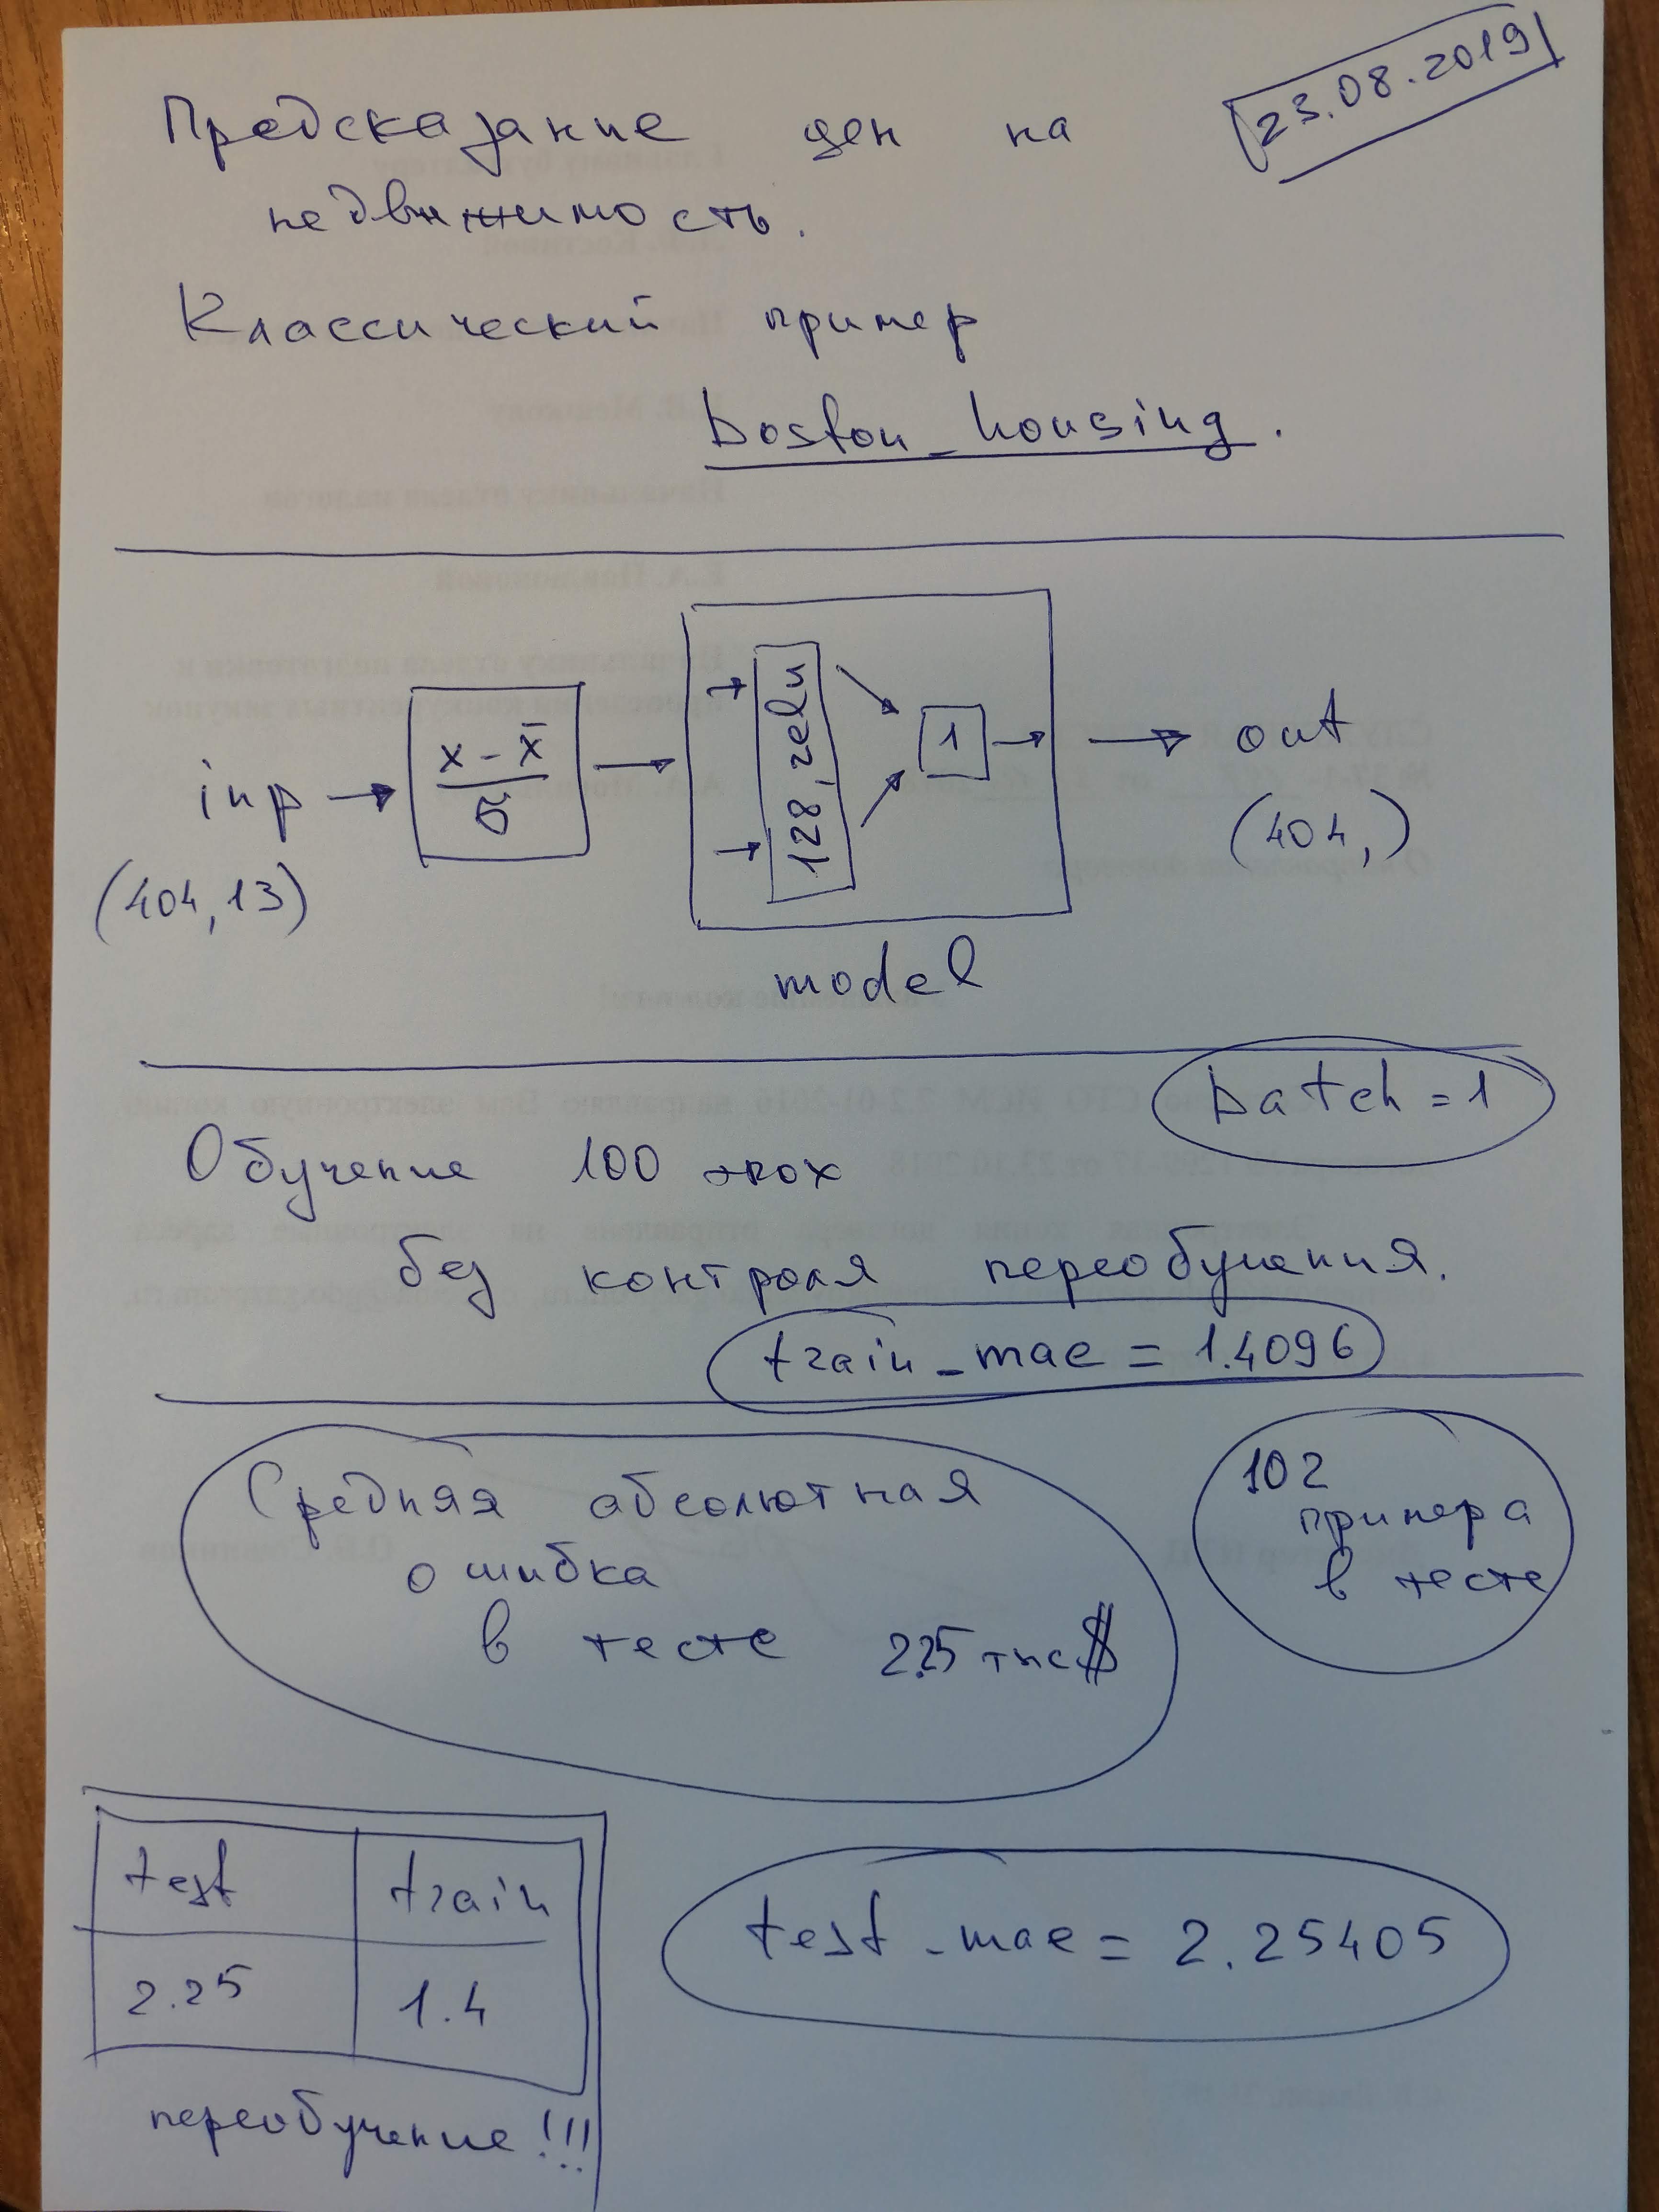 23.08.2019
Предсказание цен на
недвижимость.
Классический пример
boston_housing.
inp
(404,13)
x - x̄
σ
128, relu
1
out
(404,)
model
batch = 1
Обучение 100 эпох
без контроля переобучения.
train_mae = 1.4096
Средняя абсолютная
ошибка
в тесте 2.25 тыс$
102
примера
в тесте
test train
2.25 1.4
переобучение!!!
test_mae = 2.25405